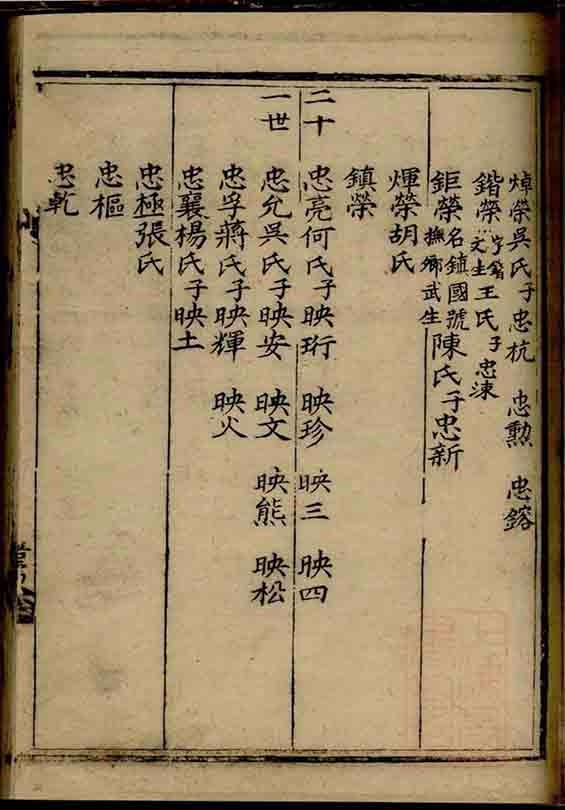 焯榮吳氏子忠杭 忠勲 忠鎔
鍇榮 文生 王氏子忠涑
鉅榮名鎮國號撫鄉武生陳氏子忠新
煇榮胡氏
鎮榮
二十一世
忠亮何氏子映珩 映珍 映三 映四
忠允吳氏子映安 映文 映熊 映松
忠孚蔣氏子映輝 映火
忠襄楊氏子映土
忠極張氏
忠樞
忠乾